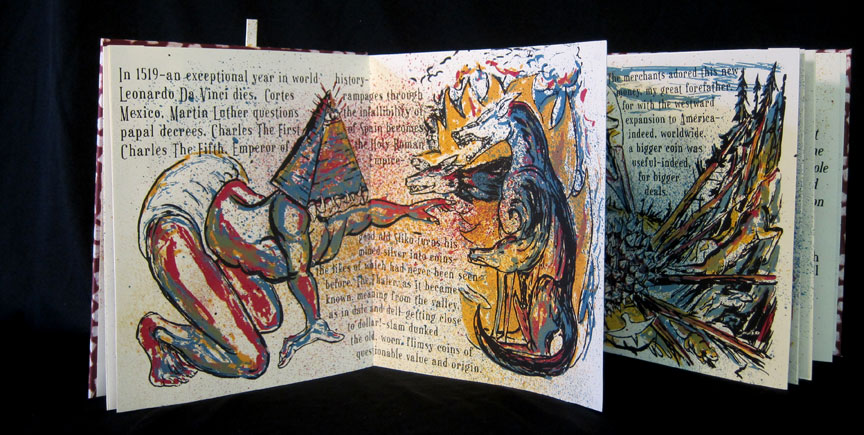 In 1519-an exceptional year in world history-
Leonardo Da Vinci dies, Cortes rampages through
Mexico, Martin Luther questions the infallibility of
papal decrees, Charles The First of Spain becomes
Charles The Fifth, Emperor of the Holy Roman
Empire-
good old Stiko turns his
mined silver into coins-
the likes of which had never been seen
before. The thaler, as it became
known, meaning from the valley,
as in dale and dell-getting close
to dollar!-slam dunked
the old, worn, flimsy coins of
questionable value and origin.
The merchants adored this new
money, my great forefather,
for with the westward
expansion to America-
indeed, worldwide,
a bigger coin was
useful-indeed,
for bigger
deals.